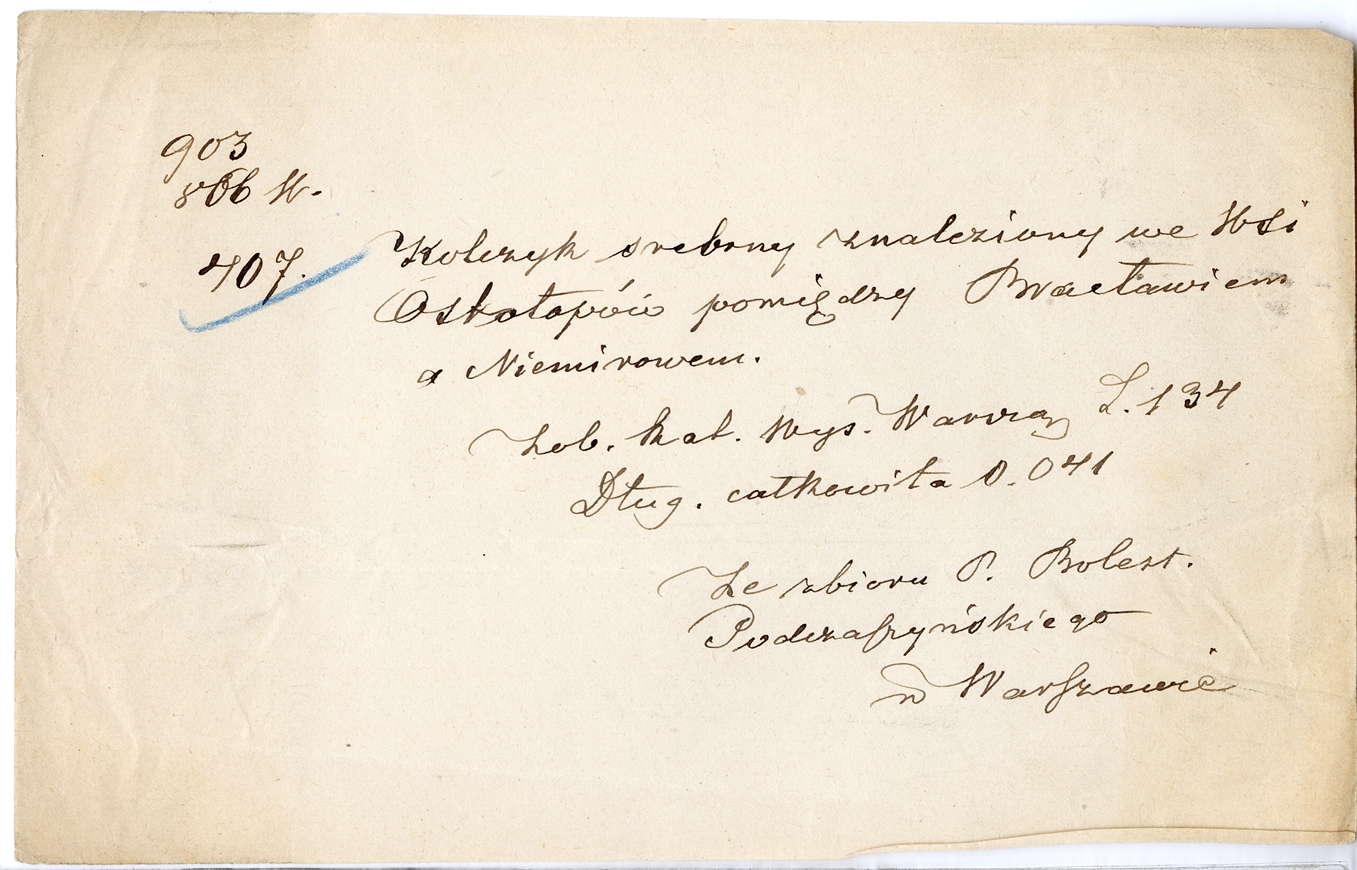 903
866 W.
407.
Kolczyk srebrny znaleziony we Wsi
Ostałopów pomiędzy Bracławiem
a Niemirowem.
Zob. Kat. Wys. Warsza L. 134
Dług. całkowita 0.041
Ze zbioru P. Bolesł.
Podczaszyńskiego
w Warszawie